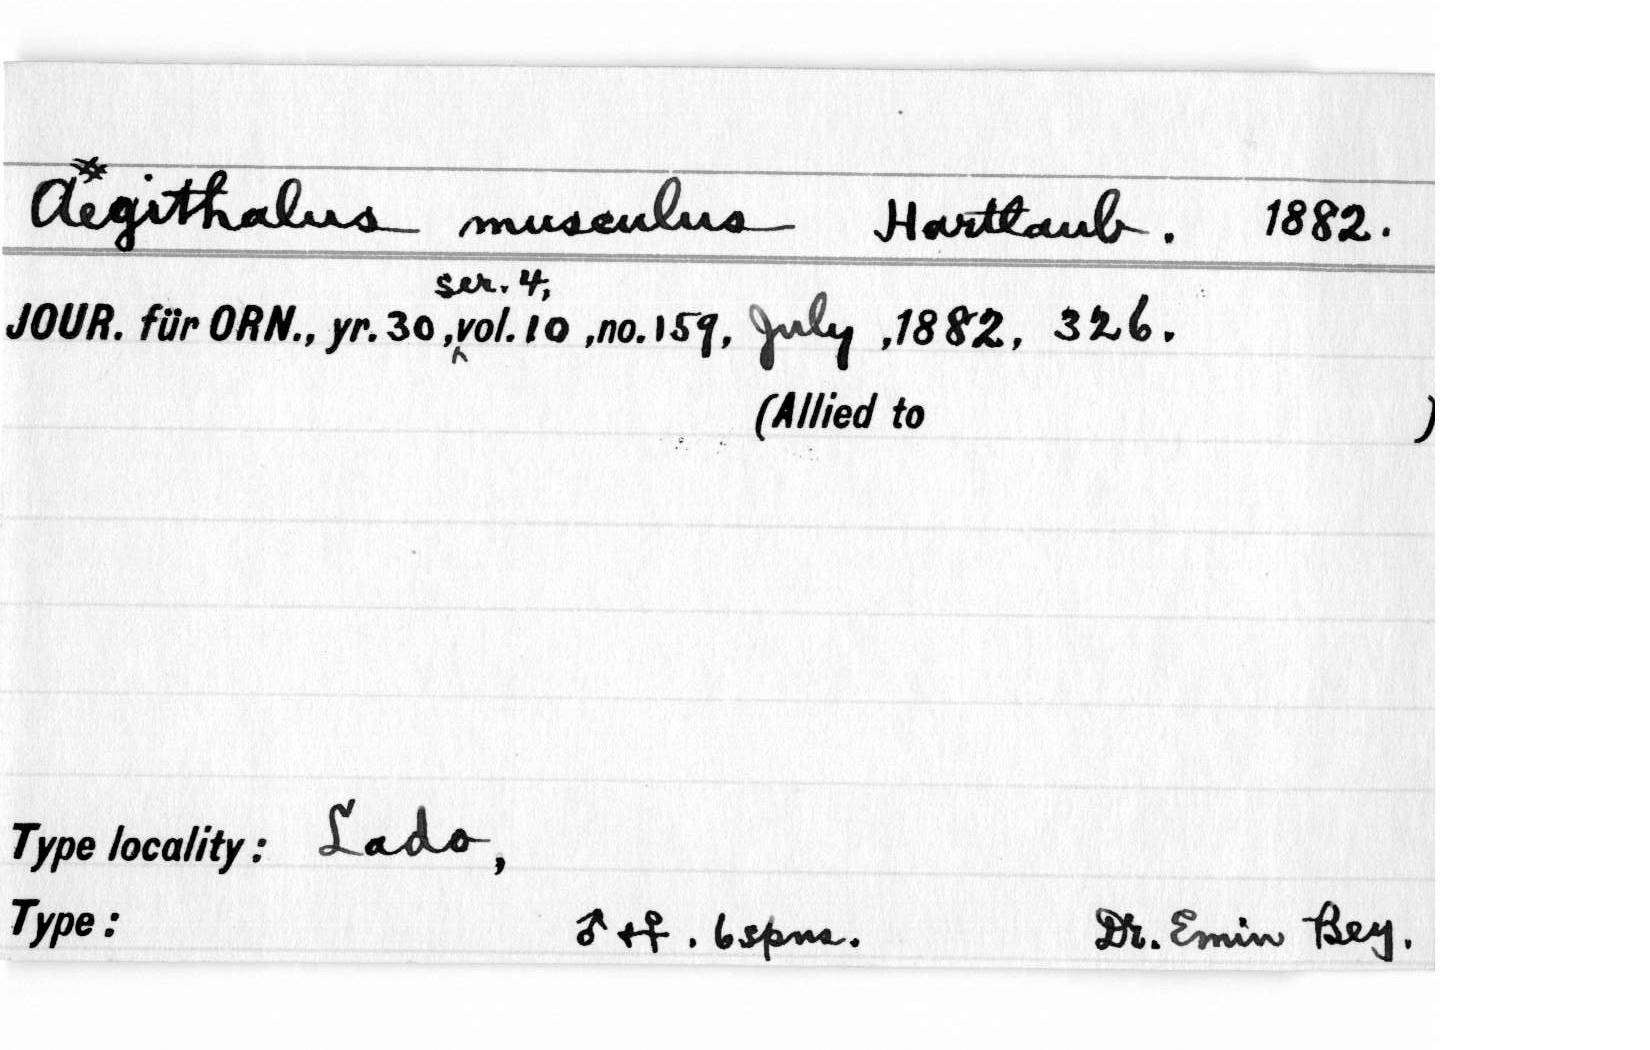 Aegithalus musculus Hartlaub. 1882.
ser. 4,
JOUR. für ORN., yr. 30, vol. 10, no. 159, July, 1882, 326.
(Allied to )
Type locality: Lado,
Type: ♂ + ♀. 6 spns. Dr. Emin Bey.